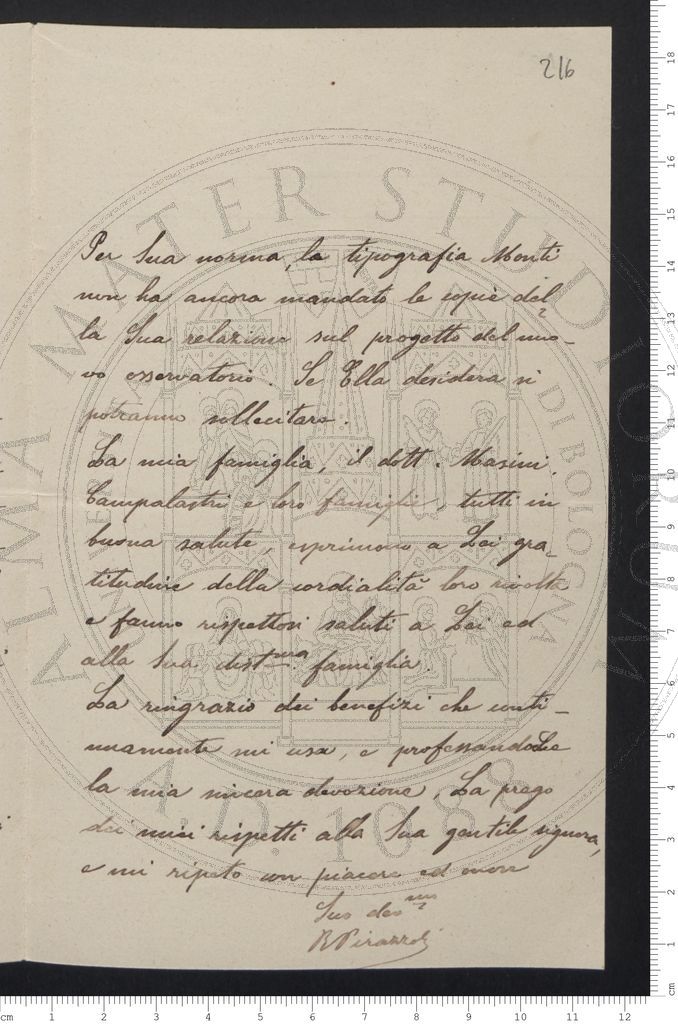 216
Per Sua norma, la tipografia Monti
non ha ancora mandato le copie del-
la Sua relazione sul progetto del nuo-
vo osservatorio. Se Ella desidera si
potranno sollecitare.
La mia famiglia, il dott. Masini,
Campalastri e loro famiglie, tutti in
buona salute, esprimono a Lei gra-
titudine della cordialità loro rivolta
e fanno rispettosi saluti a Lei ed
alla Sua dist.ma famiglia.
La ringrazio dei benefizi che conti-
nuamente mi usa, e professandoLe
la mia sincera devozione, La prego
dei miei rispetti alla Sua gentile signora,
e mi ripeto con piacere ed onore
Suo dev.mo
R Pirazzoli
ALMA MATER STUDIORUM
A.D. 1088